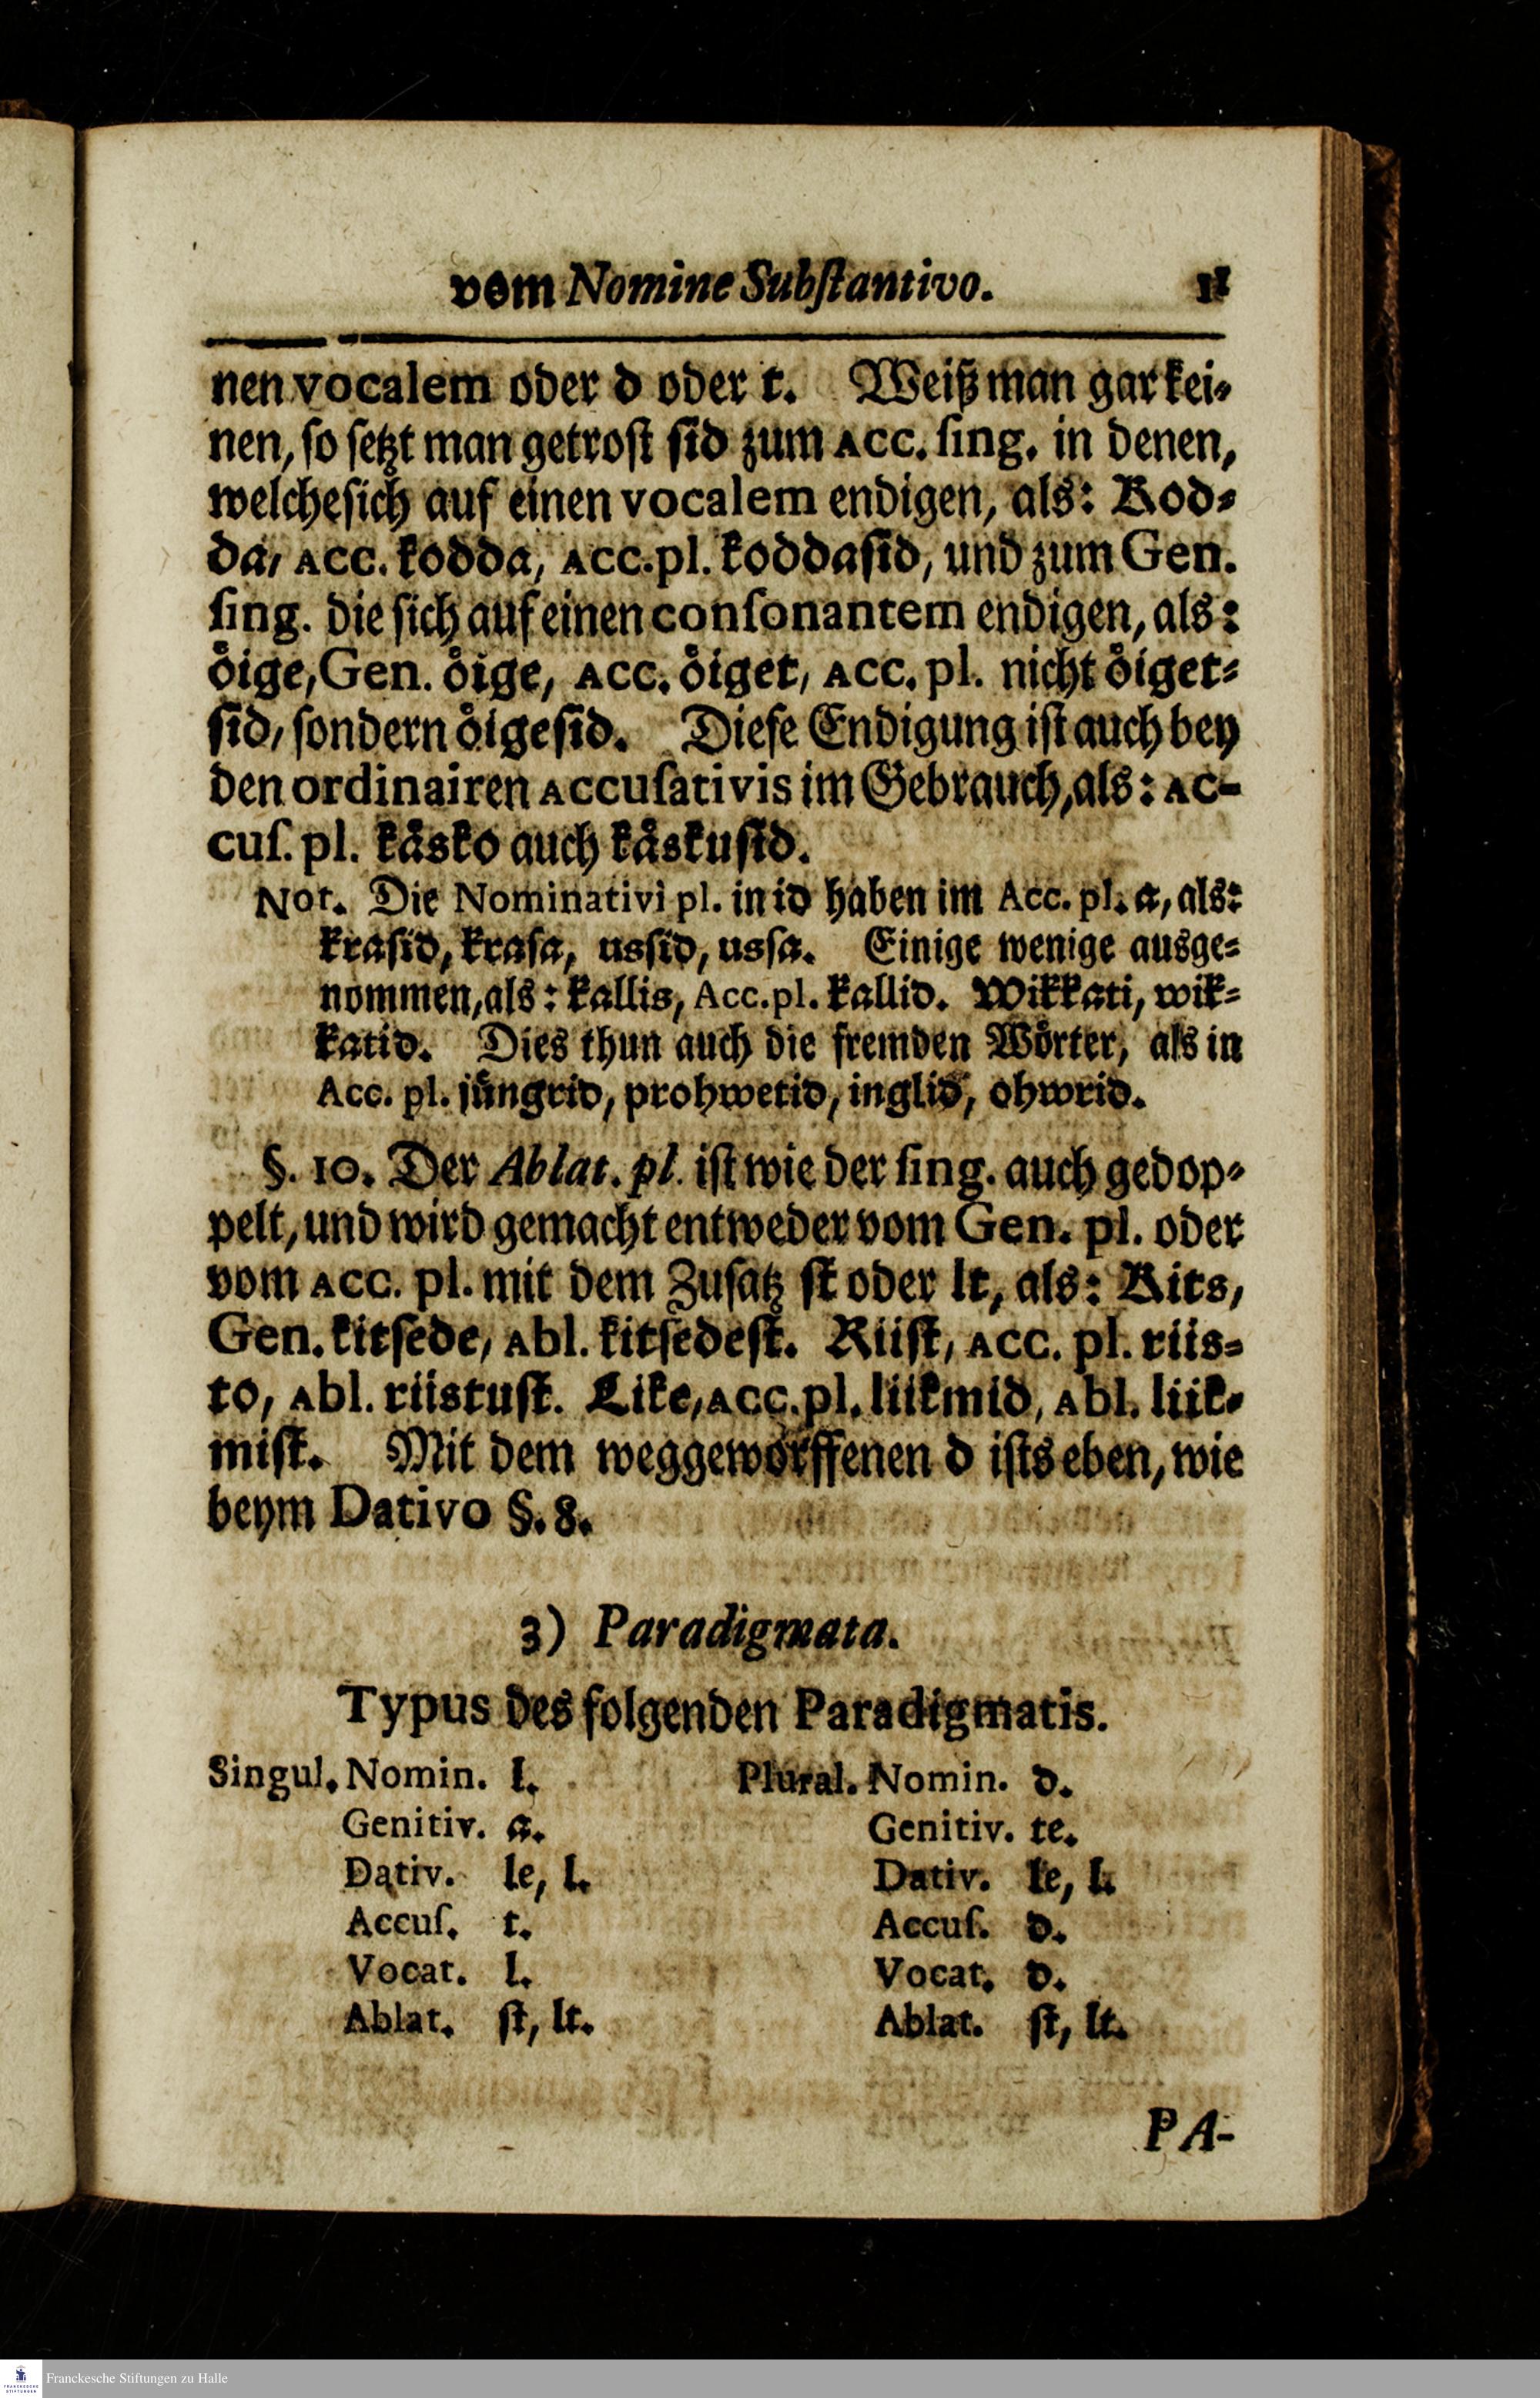 vom Nomine Subſtantivo. 11
nen vocalem oder d oder t. Weiß man gar kei⸗
nen, ſo ſetzt man getroſt ſid zum Acc. ſing. in denen,
welche ſich auf einen vocalem endigen, als: Kod⸗
da, Acc. kodda, Acc. pl. koddaſid, und zum Gen.
ſing. die ſich auf einen conſonantem endigen, als:
oͤige, Gen. oͤige, Acc. oͤiget, Acc. pl. nicht oͤiget⸗
ſid, ſondern oͤigeſid. Dieſe Endigung iſt auch bey
den ordinairen Accuſativis im Gebrauch, als: Ac-
cuſ. pl. kaͤsko auch kaͤskuſid.
Not. Die Nominativi pl. in id haben im Acc. pl. a, als:
kraſid, kraſa, usſid, usſa. Einige wenige ausge⸗
nommen, als: kallis, Acc. pl. kallid. Wikkati, wik⸗
katid. Dies thun auch die fremden Woͤrter, als in
Acc. pl. juͤngrid, prohwetid, inglid, ohwrid.
§. 10. Der Ablat. pl. iſt wie der ſing. auch gedop⸗
pelt, und wird gemacht entweder vom Gen. pl. oder
vom Acc. pl. mit dem Zuſatz ſt oder lt, als: Kits,
Gen. kitſede, Abl. kitſedeſt. Riiſt, Acc. pl. riis⸗
to, Abl. riistuſt. Like, Acc. pl. liikmid, Abl. liik⸗
miſt. Mit dem weggeworffenen d iſts eben, wie
beym Dativo §. 8.
3) Paradigmata.
Typus des folgenden Paradigmatis.
Singul. Nomin. l. Plural. Nomin. d.
Genitiv. a. Genitiv. te.
Dativ. le, l. Dativ. le, l.
Accuſ. t. Accuſ. d.
Vocat. l. Vocat. d.
Ablat. ſt, lt. Ablat. ſt, lt.
PA-
Franckesche Stiftungen zu Halle